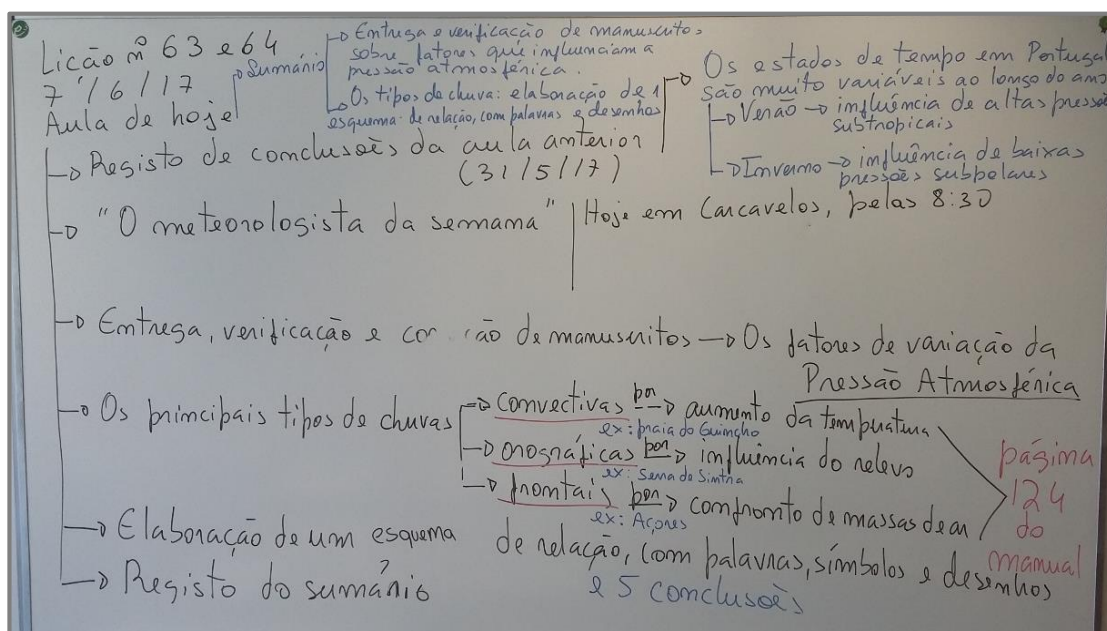 Lição nº 63 e 64
7/6/17
Aula de hoje
Sumário
→ Entrega e verificação de manuscritos
sobre fatores que influenciam a
pressão atmosférica.
→ Os tipos de chuva: elaboração de 1
esquema de relação, com palavras e desenhos
→ Registo de conclusões da aula anterior
(31/5/17)
→ Os estados de tempo em Portugal
são muito variáveis ao longo do ano
→ Verão → influência de altas pressões
subtropicais
→ Inverno → influência de baixas
pressões subpolares
→ "O meteorologista da semana" | Hoje em Carcavelos, pelas 8:30
→ Entrega, verificação e de manuscritos → Os fatores de variação da
Pressão Atmosférica
→ Os principais tipos de chuvas
→ convectivas por → aumento da temperatura
ex: praia do Guincho
→ orográficas por → influência do relevo
ex: Serra de Sintra
→ frontais por → confronto de massas de ar
ex: Açores
página
124
do
manual
→ Elaboração de um esquema de relação, com palavras, símbolos e desenhos
e 5 conclusões
→ Registo do sumário